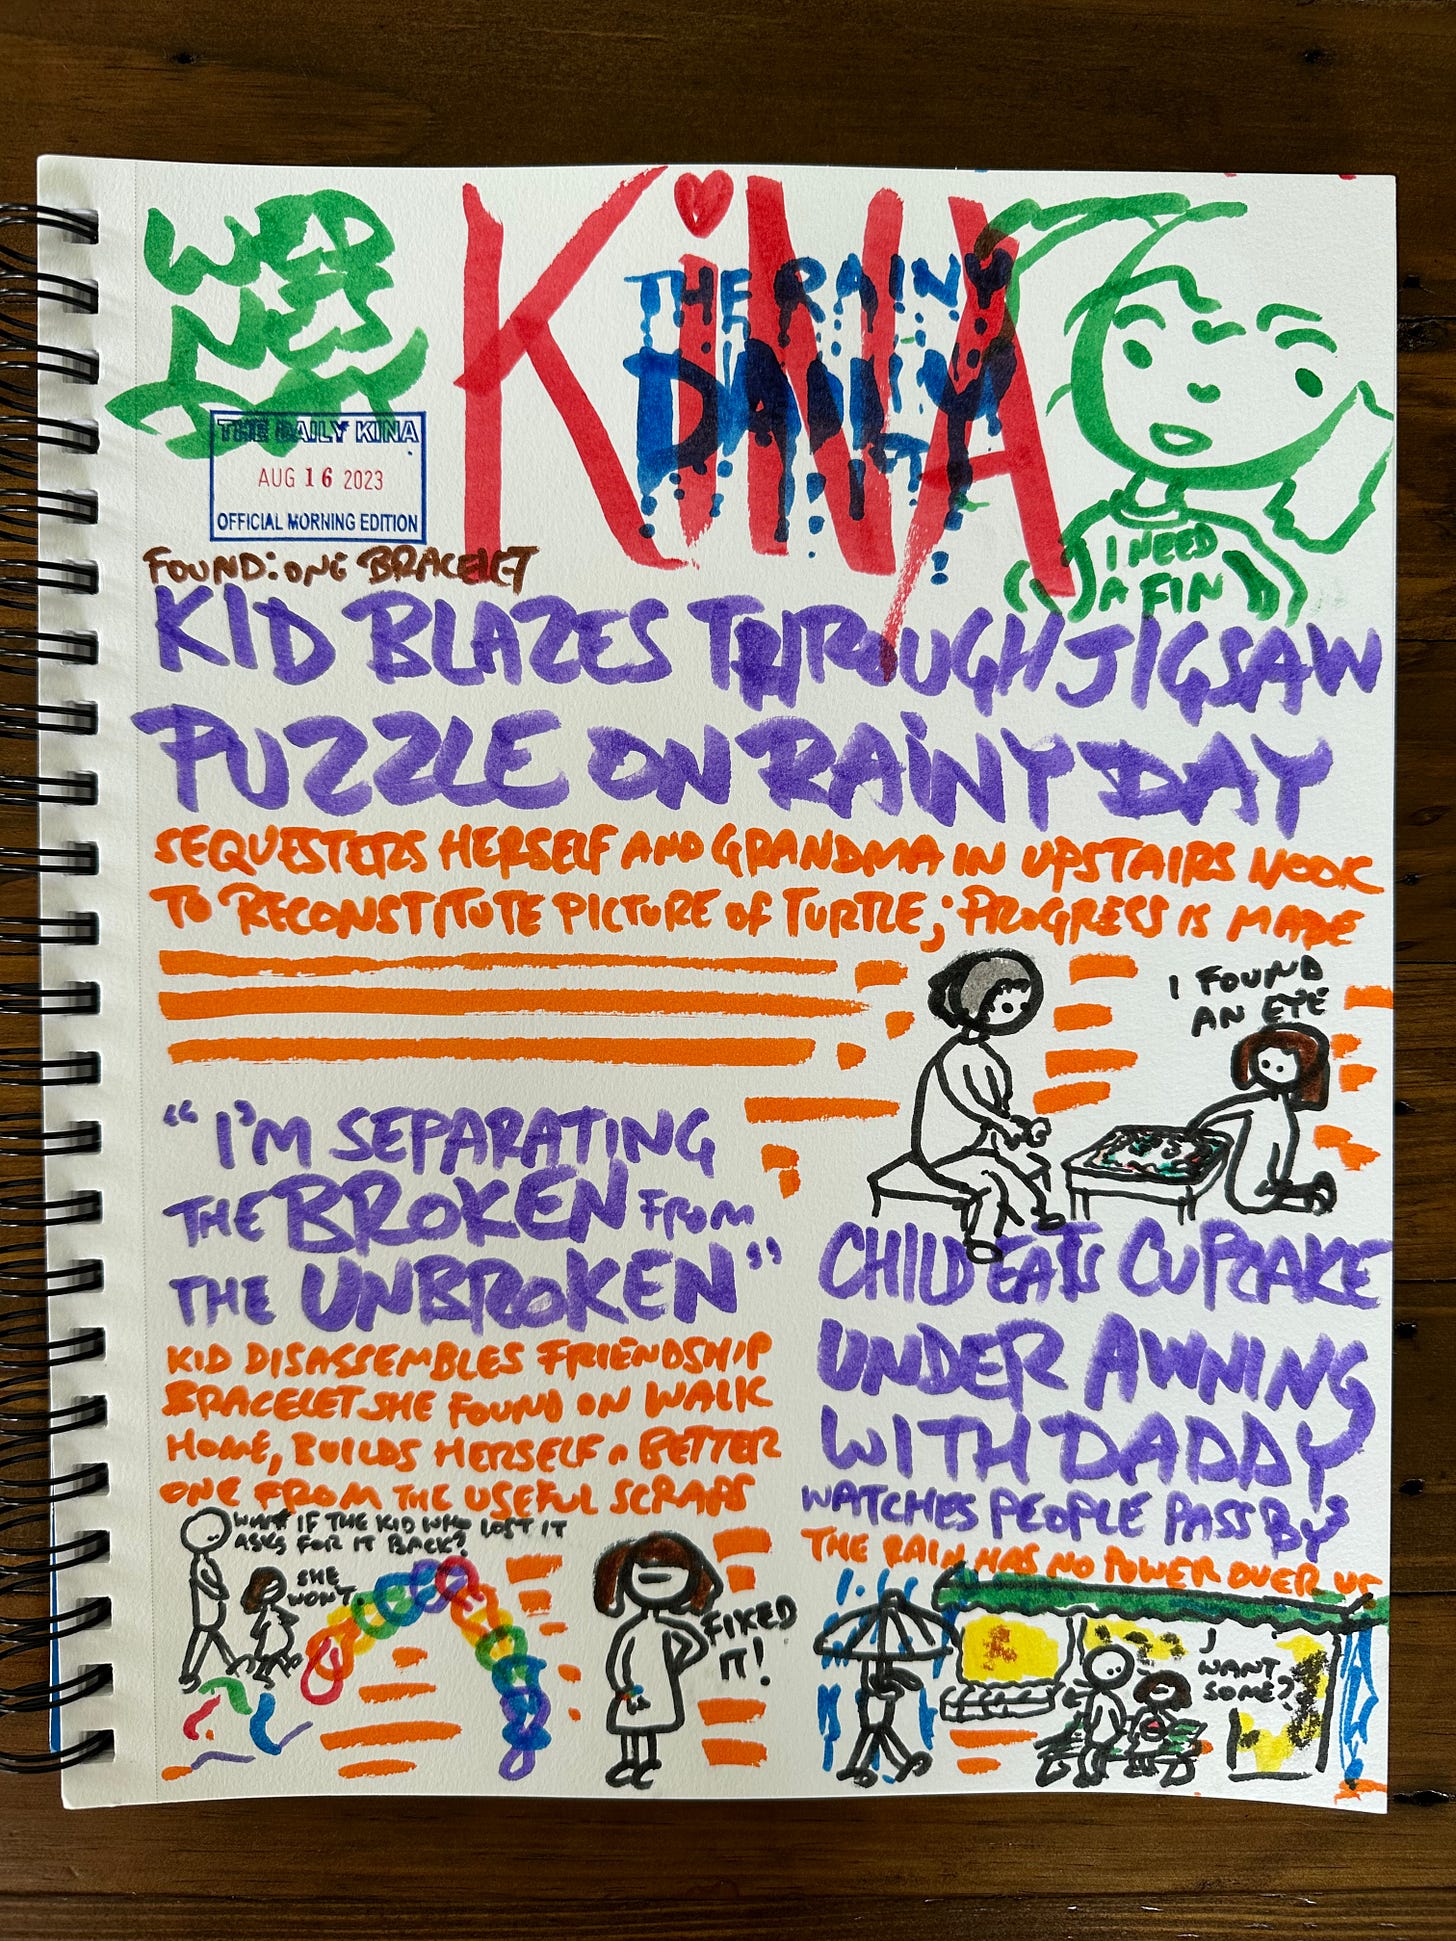 WED
NES
DAY
THE DAILY KINA
AUG 16 2023
OFFICIAL MORNING EDITION
KiNA
THE RAINY
DAILY
I NEED
A FIN
FOUND: ONE BRACELET
KID BLAZES THROUGH JIGSAW
PUZZLE ON RAINY DAY
SEQUESTERS HERSELF AND GRANDMA IN UPSTAIRS NOOK
TO RECONSTITUTE PICTURE OF TURTLE; PROGRESS IS MADE
I FOUND
AN EYE
"I'M SEPARATING
THE BROKEN FROM
THE UNBROKEN"
KID DISASSEMBLES FRIENDSHIP
BRACELET SHE FOUND ON WALK
HOME, BUILDS HERSELF A BETTER
ONE FROM THE USEFUL SCRAPS
WHAT IF THE KID WHO LOST IT
ASKS FOR IT BACK?
SHE
WON'T.
FIXED
IT!
CHILD EATS CUPCAKE
UNDER AWNING
WITH DADDY
WATCHES PEOPLE PASS BY
THE RAIN HAS NO POWER OVER US
WANT
SOME?